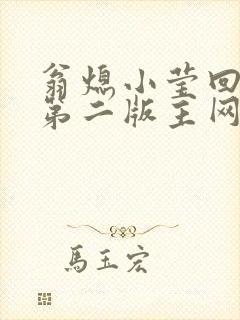 翁熄小莹回
第二版主网
馬玉宏